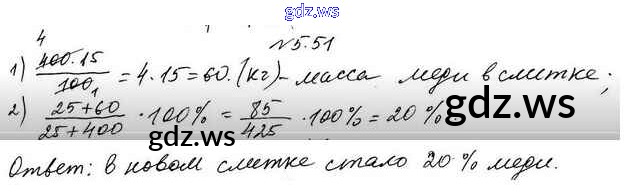 gdz.ws
№5.51
1) 400·15/100 = 4·15=60 (кг) – масса меди в слитке;
2) 25+60/25+400 · 100% = 85/425 · 100% = 20%
gdz.ws
gdz.ws
Ответ: в новом слитке стало 20% меди.
gdz.ws